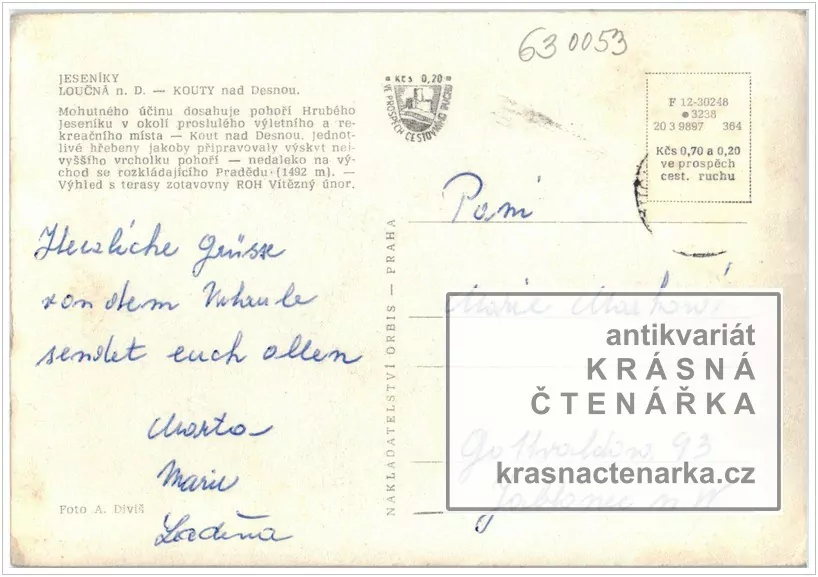 63 0053
JESENÍKY
LOUČNÁ n. D. — KOUTY nad Desnou.
Mohutného účinu dosahuje pohoří Hrubého
Jeseníku v okolí proslulého výletního a re-
kreačního místa — Kout nad Desnou. Jednot-
livé hřebeny jakoby připravovaly výskyt nej-
vyššího vrcholku pohoří — nedaleko na vý-
chod se rozkládajícího Pradědu (1492 m). —
Výhled s terasy zotavovny ROH Vítězný únor.
Kčs 0,20
VE PROSPĚCH CESTOVNÍHO RUCHU
F 12-30248
3238
20 3 9897 364
Kčs 0,70 a 0,20
ve prospěch
cest. ruchu
Herzliche Grüsse
von dem
sendet euch allen
Marta
Marie
Foto A. Diviš
NAKLADATELSTVÍ ORBIS — PRAHA
Paní
Marie
Gottwaldova 93
Jablonec n N
antikvariát
KRÁSNÁ
ČTENÁŘKA
krasnactenarka.cz